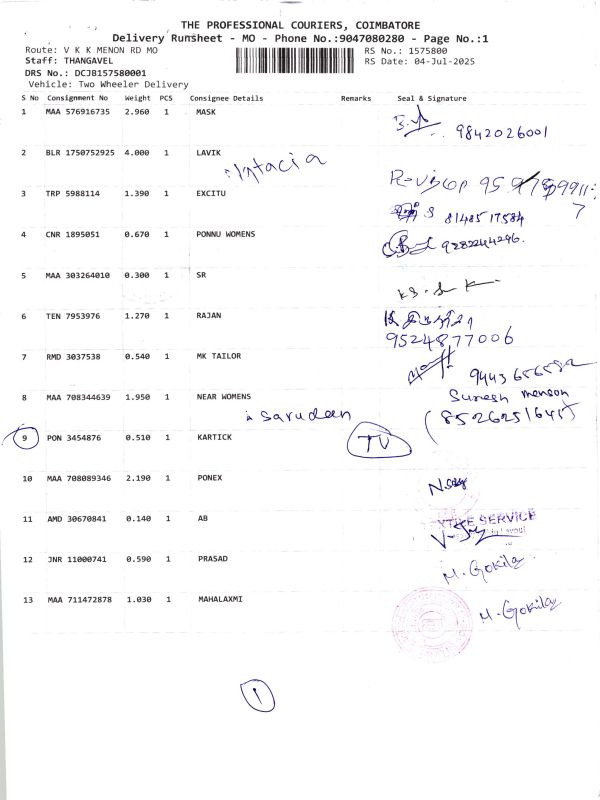 THE PROFESSIONAL COURIERS, COIMBATORE
Delivery Runsheet - MO - Phone No.:9047080280 - Page No.:1
Route: V K K MENON RD MO RS No.: 1575800
Staff: THANGAVEL RS Date: 04-Jul-2025
DRS No.: DCJ8157580001
Vehicle: Two Wheeler Delivery
S No Consignment No Weight PCS Consignee Details Remarks Seal & Signature
1 MAA 576916735 2.960 1 MASK
9842026001
2 BLR 1750752925 4.000 1 LAVIK
3 TRP 5988114 1.390 1 EXCITU
8148517584
4 CNR 1895051 0.670 1 PONNU WOMENS
9282244296.
5 MAA 303264010 0.300 1 SR
6 TEN 7953976 1.270 1 RAJAN
9524877006
7 RMD 3037538 0.540 1 MK TAILOR
8 MAA 708344639 1.950 1 NEAR WOMENS
Suresh menson
(8526251641)
9 PON 3454876 0.510 1 KARTICK
10 MAA 708089346 2.190 1 PONEX
11 AMD 30670841 0.140 1 AB
SERVICE
12 JNR 11000741 0.590 1 PRASAD
M. Gokila
13 MAA 711472878 1.030 1 MAHALAXMI
M. Gokila
1